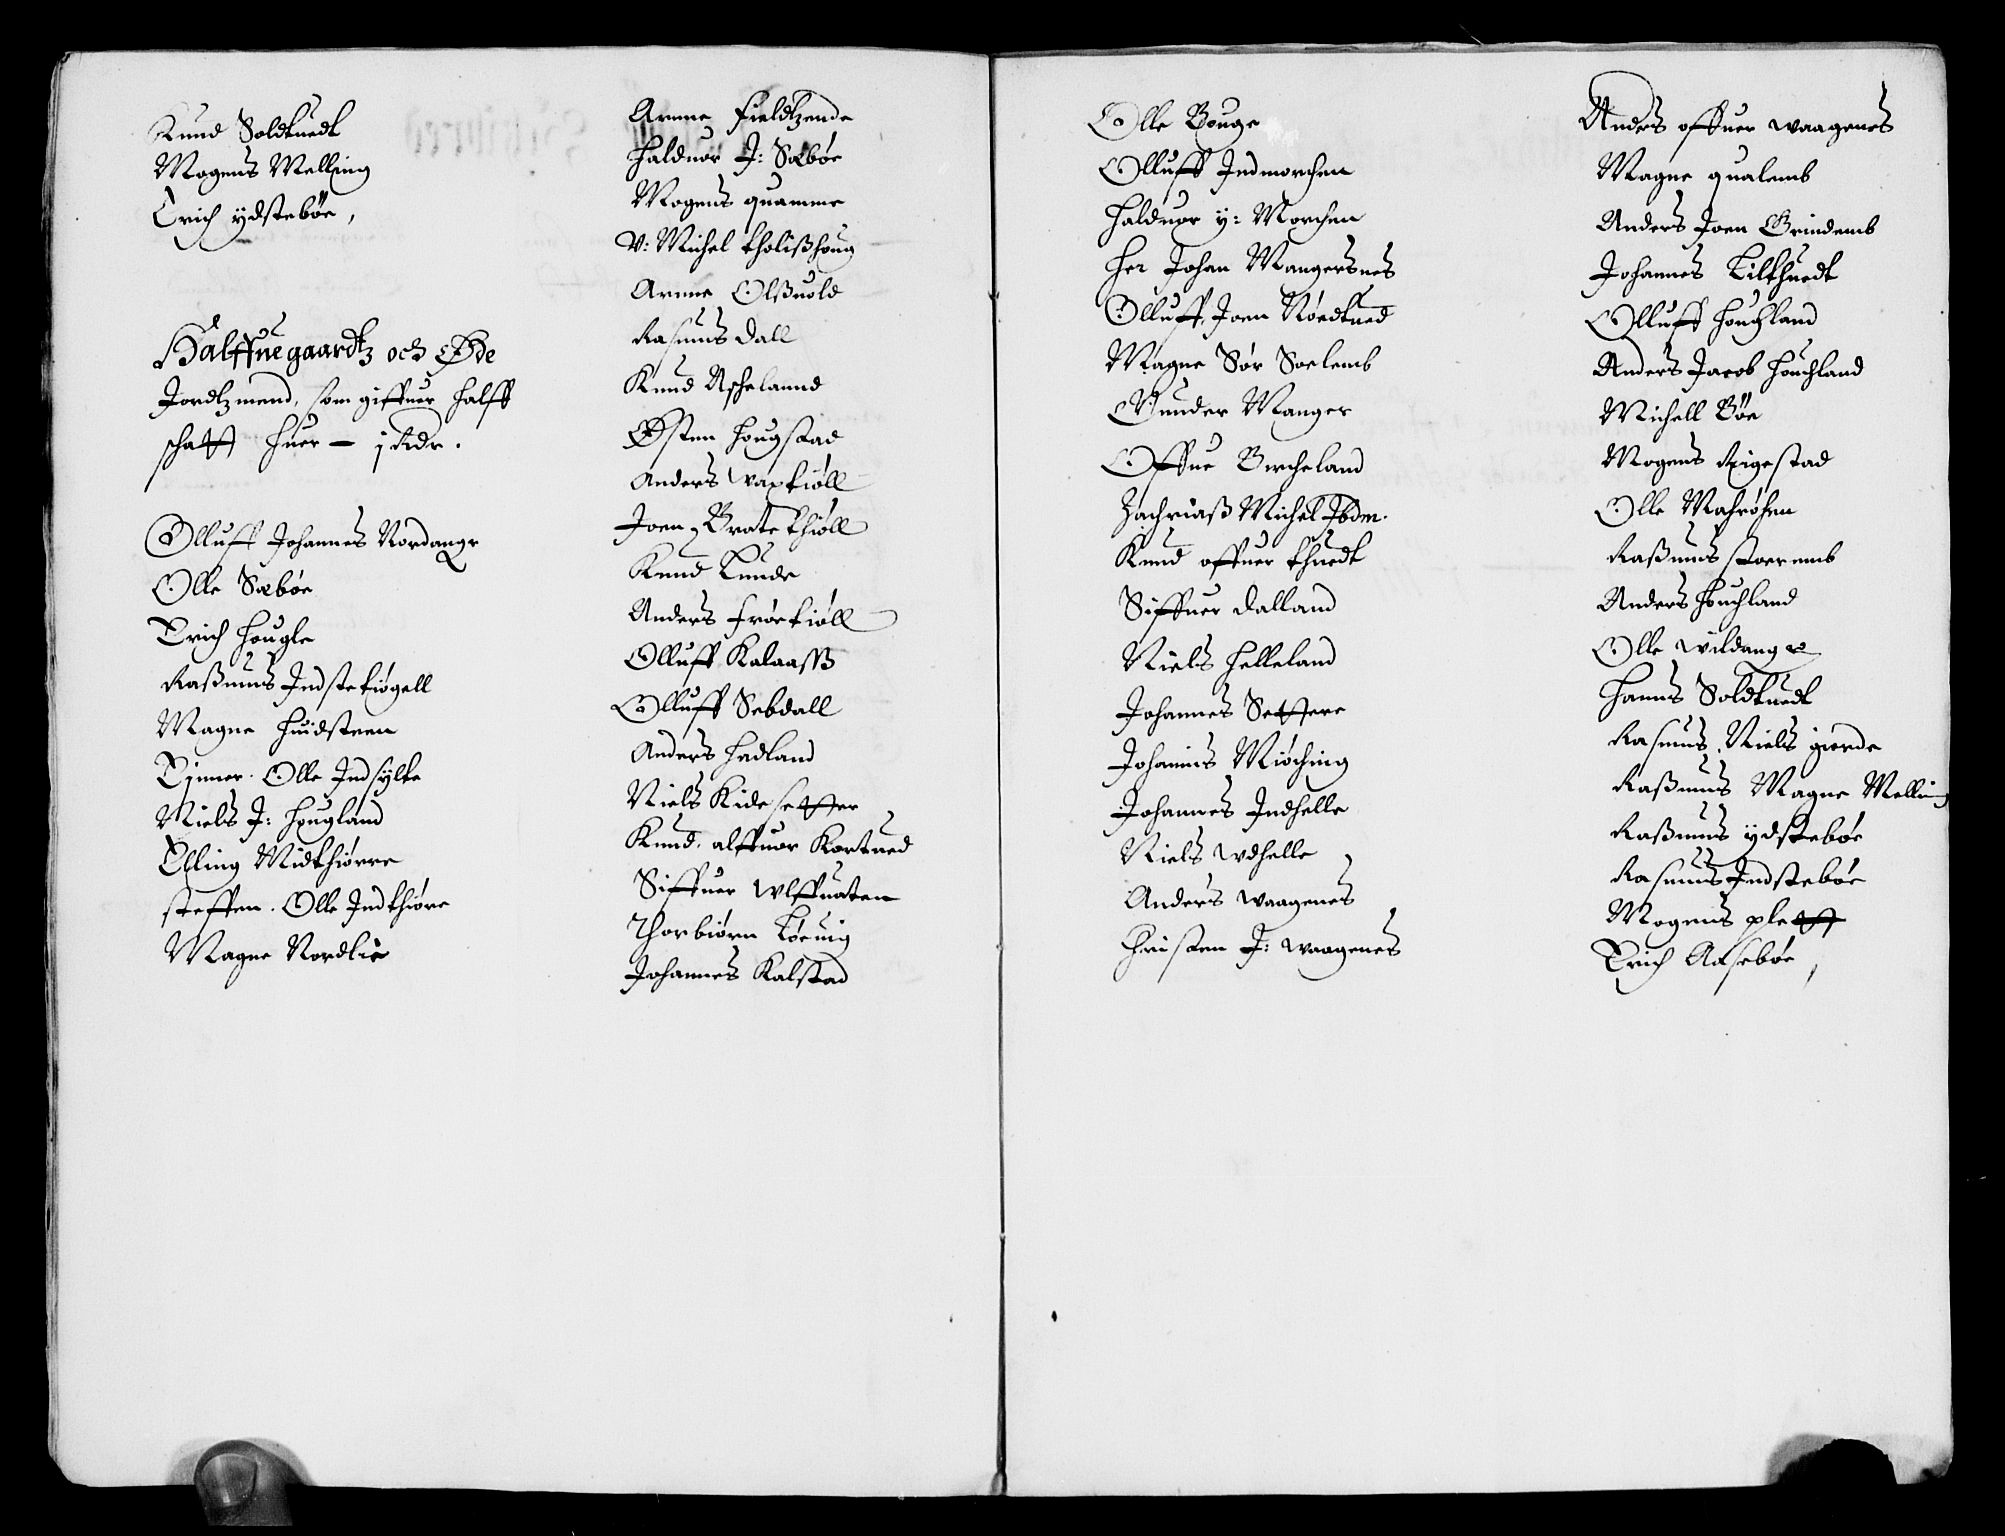 Knud Soldtuedt
Mogens Melling
Erich ydstebøe,
Halffuegaardtz och Øde
Jordtzmend, som giffuer halff
schatt huer — j Rdr.
Olluff Johannes Nordanger
Olle Sæbøe
Erich Hougle
Raßmus Indstekiøgell
Magne Huidsteen
Einner. Olle Indsylte
Niels J: Hougland
Elling Midthiørre
Steffen. Olle Indthiøre
Magne Nordlie
Arnne Fieldtzende
Halduor J: Sæbøe
Mogens quamme
V: Michel tholißhoug
Arnne Olßuold
Rasmus Dall
Knud Aschelannd
Østen Hougstad
Anders Vaxkiøll
Joen Bratekhiøll
Knud Lunde
Anders Frøekiøll
Olluff Kalaasß
Olluff Sebdall
Anders Hadland
Niels Kidesetter
Knud. alffuor Kortued
Siffuer Wlffuaten
Thorbiørn Løeuig
Johannes Kalstad
Olle Bouge
Olluff Indmorchen
Halduor y: Morchen
Her Johan Mangersnes
Olluff, Joen Nøedtued
Magne Sør Soelemb
Gunder Manger
Offue Bircheland
Zachriaß Michel Ibdm.
Knud offuer thuedt
Siffuer Dalland
Niels Helleland
Johannes Settere
Johannis Miøching
Johannes Indhelle
Niels Wdhelle
Anders Waagenes
Christen J: Waagenes
Anders offuer Waagenes
Magne qualemb
Anders Joen Grindemb
Johannes Lilthuedt
Olluff Houchland
Anders Jacob Houchland
Michell Bøe
Mogens Rigestad
Olle Mahrøhen
Raßmus stoeremb
Anders Houchland
Olle Wildanger
Hanns Soldtuedt
Rasmus, Niels gierde
Raßmus Magne Melling
Raßmus ydstebøe
Rasmus Indstebøe
Mogens plett
Erich Aasebøe,